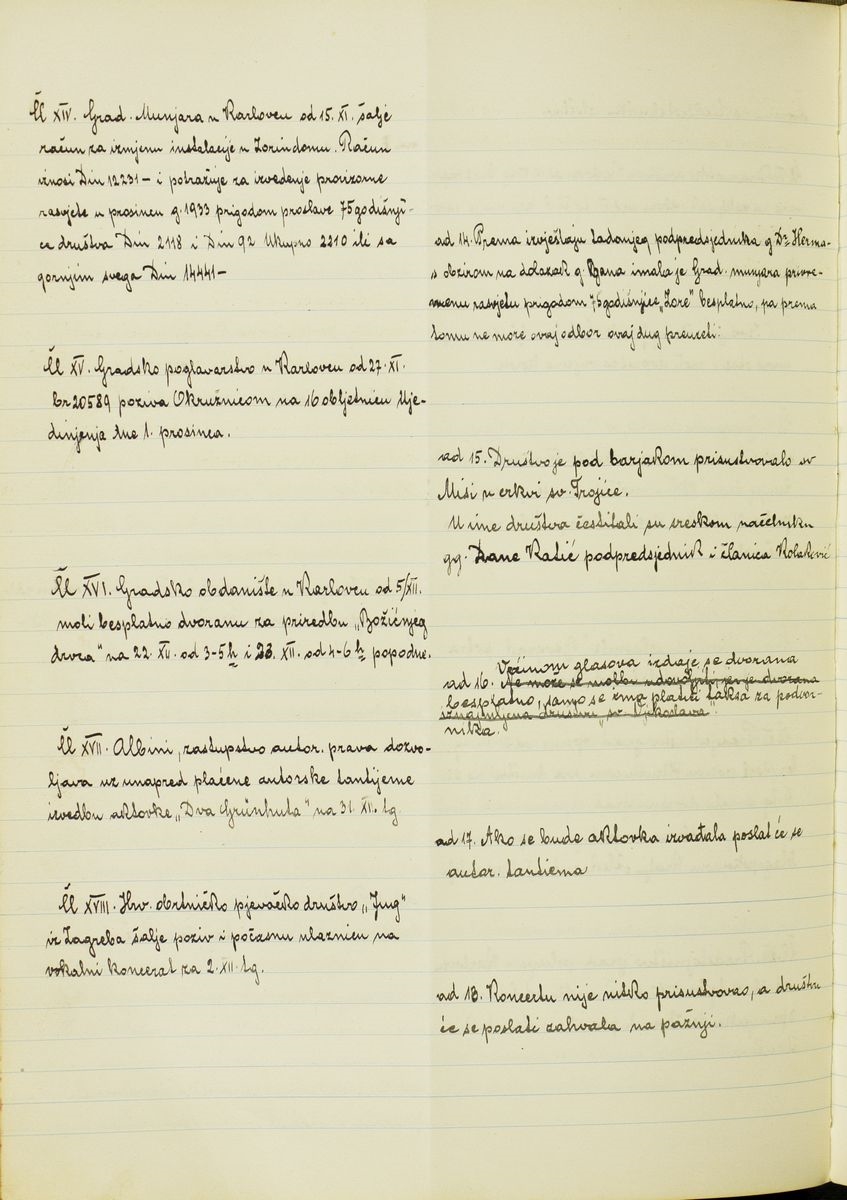 Čl XIV. Grad. Munjara u Karlovcu od 15. XI. šalje
račun za izmjenu instalacije u Zorindomu. Račun
iznosi Din 12231 – i potražuje za izvedenje provizorne
rasvjete u prosincu g. 1933 prigodom proslave 75 godišnji-
ce društva Din 2118 i Din 92 Ukupno 2210 ili sa
gornjim svega Din 14441 –
Čl XV. Gradsko poglavarstvo u Karlovcu od 27. XI.
br 20589 poziva Okružnicom na 16 obljetnicu Uje-
dinjenja dne 1. prosinca.
Čl XVI. Gradsko obdanište u Karlovcu od 5/XII.
moli besplatno dvoranu za priredbu „Božićnjeg
drvca" na 22. XII. od 3-5 h i 23. XII. od 4-6 h popodne.
Čl XVII. Albini, zastupstvo autor. prava dozvo-
ljava uz unapred plaćene autorske tantijeme
izvedbu aktovke „Dva Grünhuta" na 31. XII. tg
Čl XVIII. Hrv. obrtničko pjevačko društvo „Jug"
iz Zagreba šalje poziv i počasnu ulaznicu na
vokalni koncerat za 2. XII. tg.
ad 14. Prema izvještaju tadanjeg podpredsjednika g Dr. Herma-
s obzirom na dolazak g. Bana imala je Grad. munjara privre-
menu rasvjetu prigodom 75 godišnjice „Zore" besplatno, pa prema
tomu ne može ovaj odbor ovaj dug preuzeti.
ad 15. Društvo je pod barjakom prisustvovalo sv
Misi u crkvi sv. Trojice.
U ime društva čestitali su sreskom načelniku
gg. Dane Katić podpredsjednik i članica Kolaković
Većinom glasova izdaje se dvorana
ad 16. Ne može se molbi udovoljiti jer je dvorana
besplatno, samo se ima platiti taksa za podvor-
iznajmljena društvu „sv. Vjekoslava".
nika.
ad 17. Ako se bude aktovka izvađala poslat će se
autor. tantiema
ad 18. Koncertu nije nitko prisustvovao, a društvu
će se poslati zahvala na pažnji.